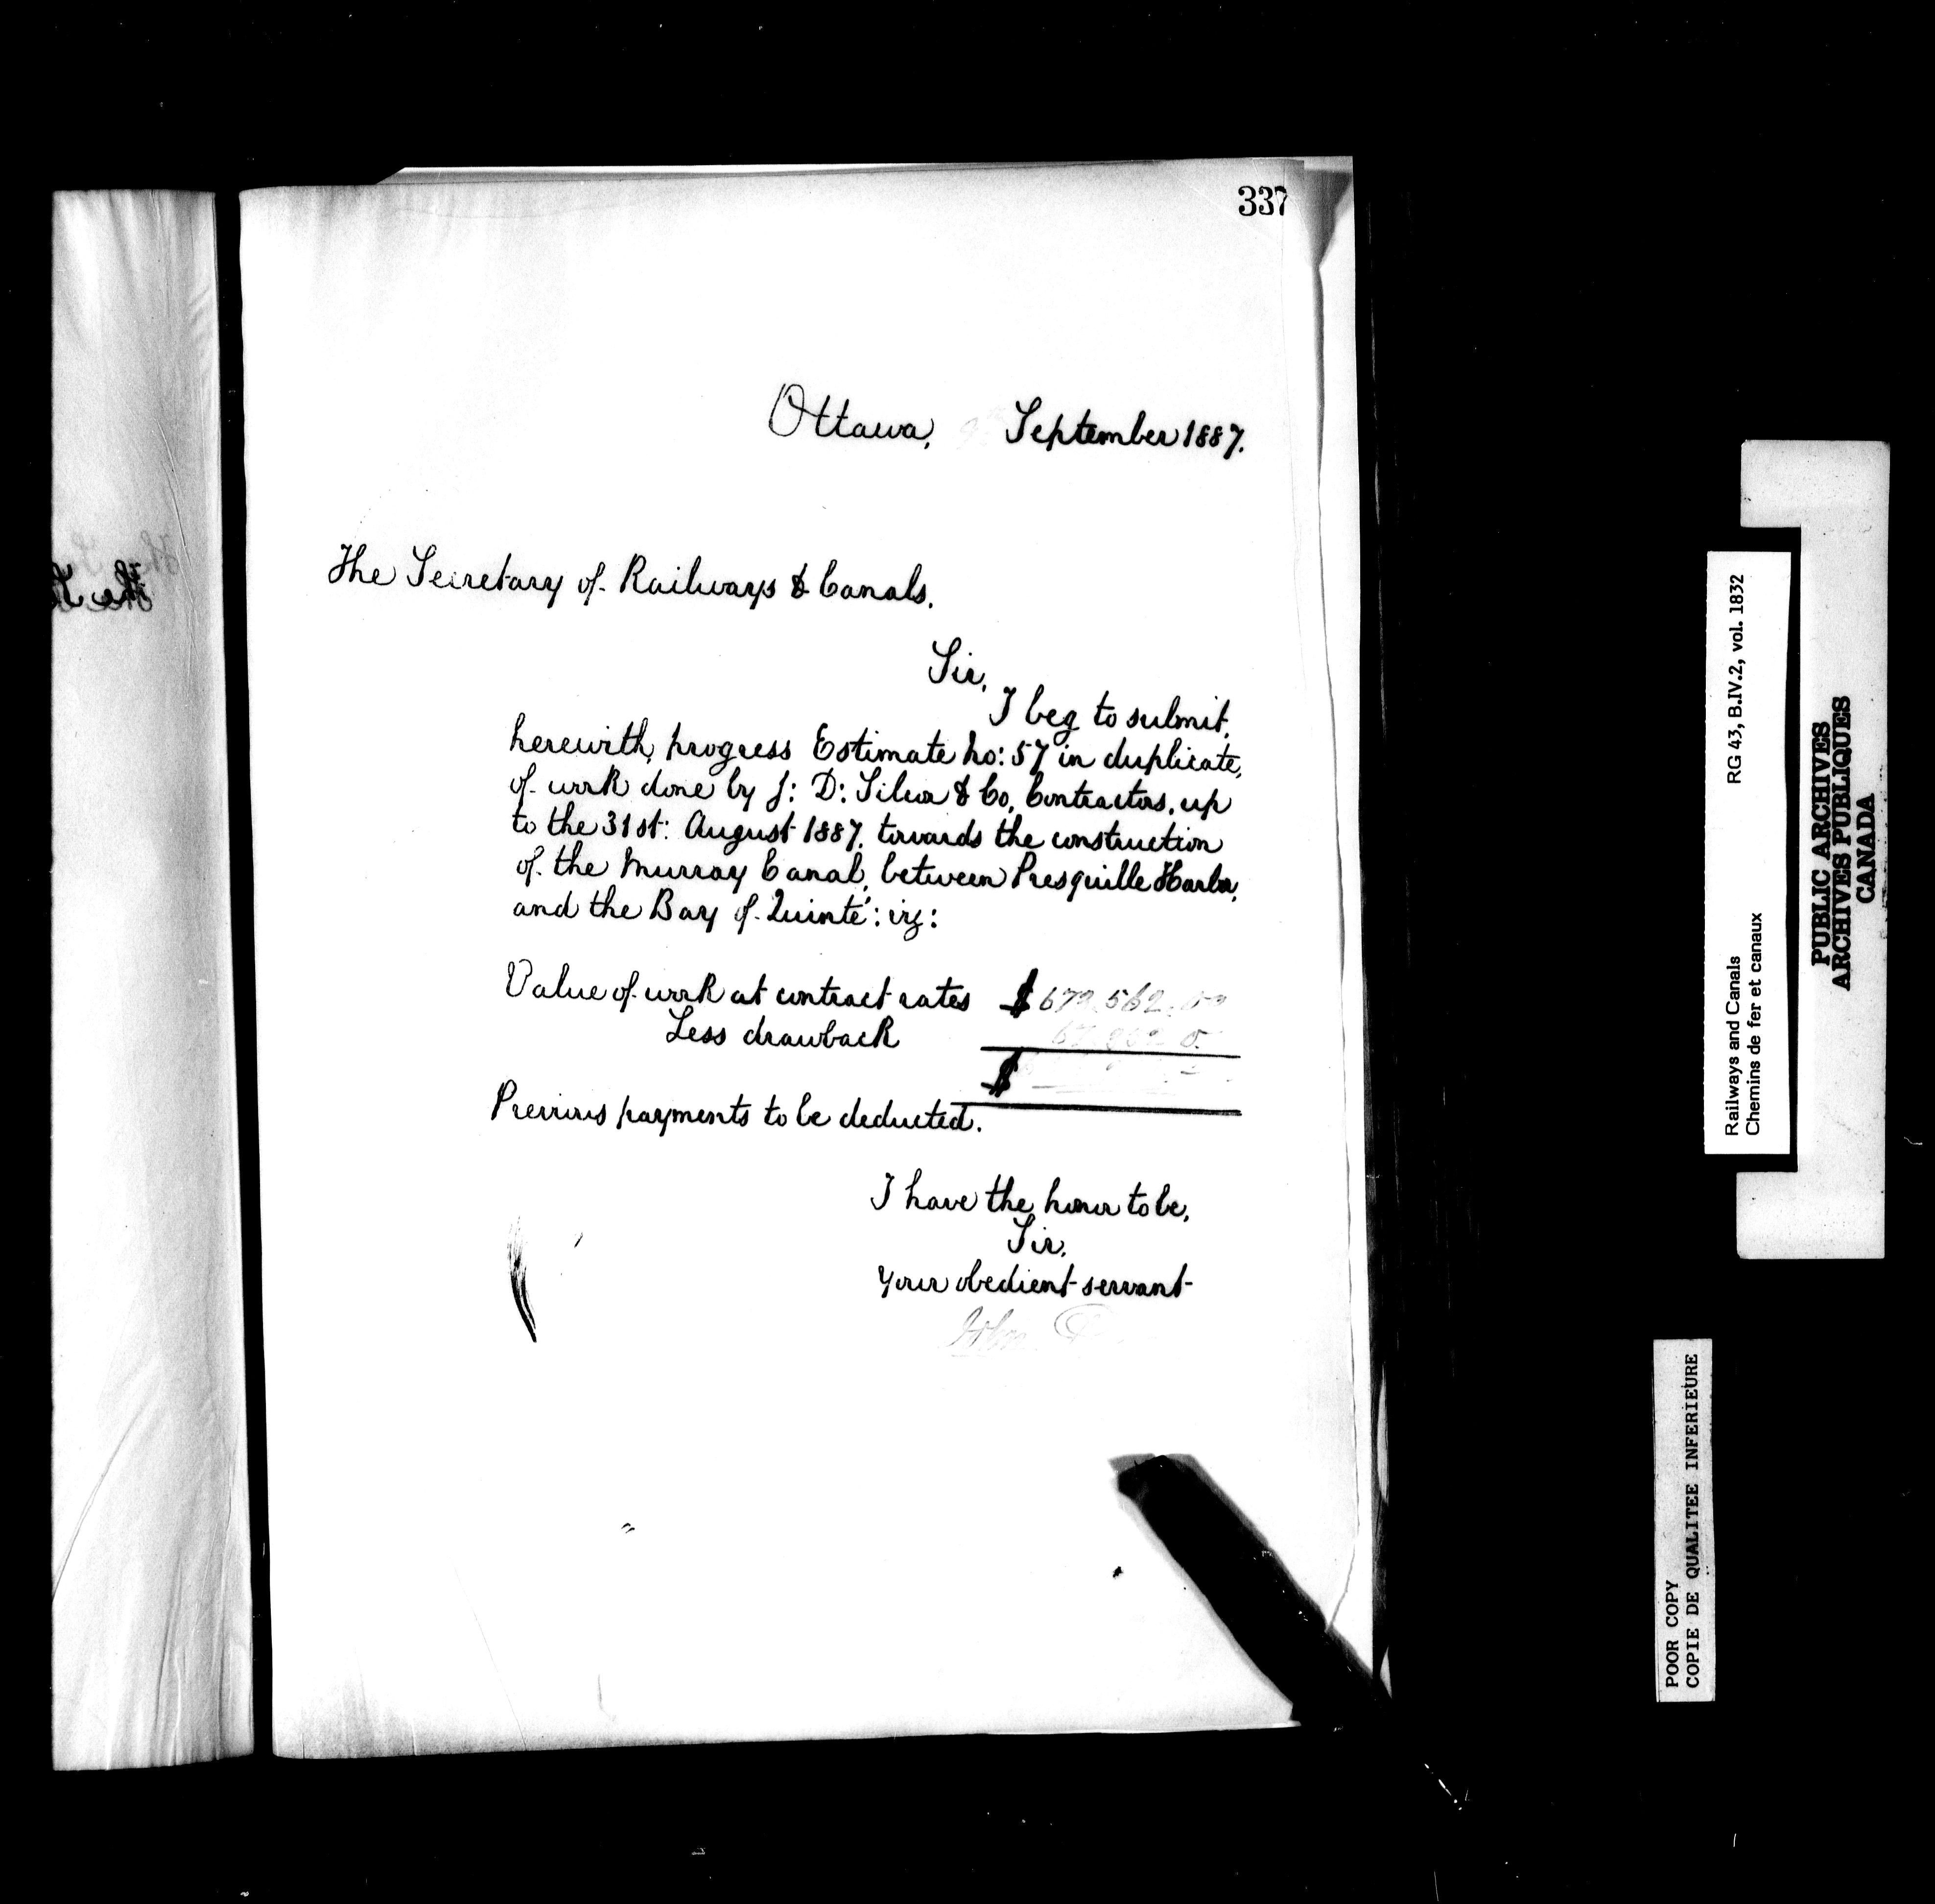 337
Ottawa, September 1887.
The Secretary of Railways & Canals.
Sir,
I beg to submit,
herewith, progress Estimate No: 57 in duplicate,
of work done by J: D: Silcox & Co, Contractors, up
to the 31st: August 1887, towards the construction
of the Murray Canal, between Presquille Harbor,
and the Bay of Quinté: viz:
Value of work at contract rates $
Less drawback
$
Previous payments to be deducted.
I have the honor to be,
Sir,
Your obedient servant
John
Railways and Canals RG 43, B.IV.2, vol. 1832
Chemins de fer et canaux
PUBLIC ARCHIVES
ARCHIVES PUBLIQUES
CANADA
POOR COPY
COPIE DE QUALITEE INFERIEURE